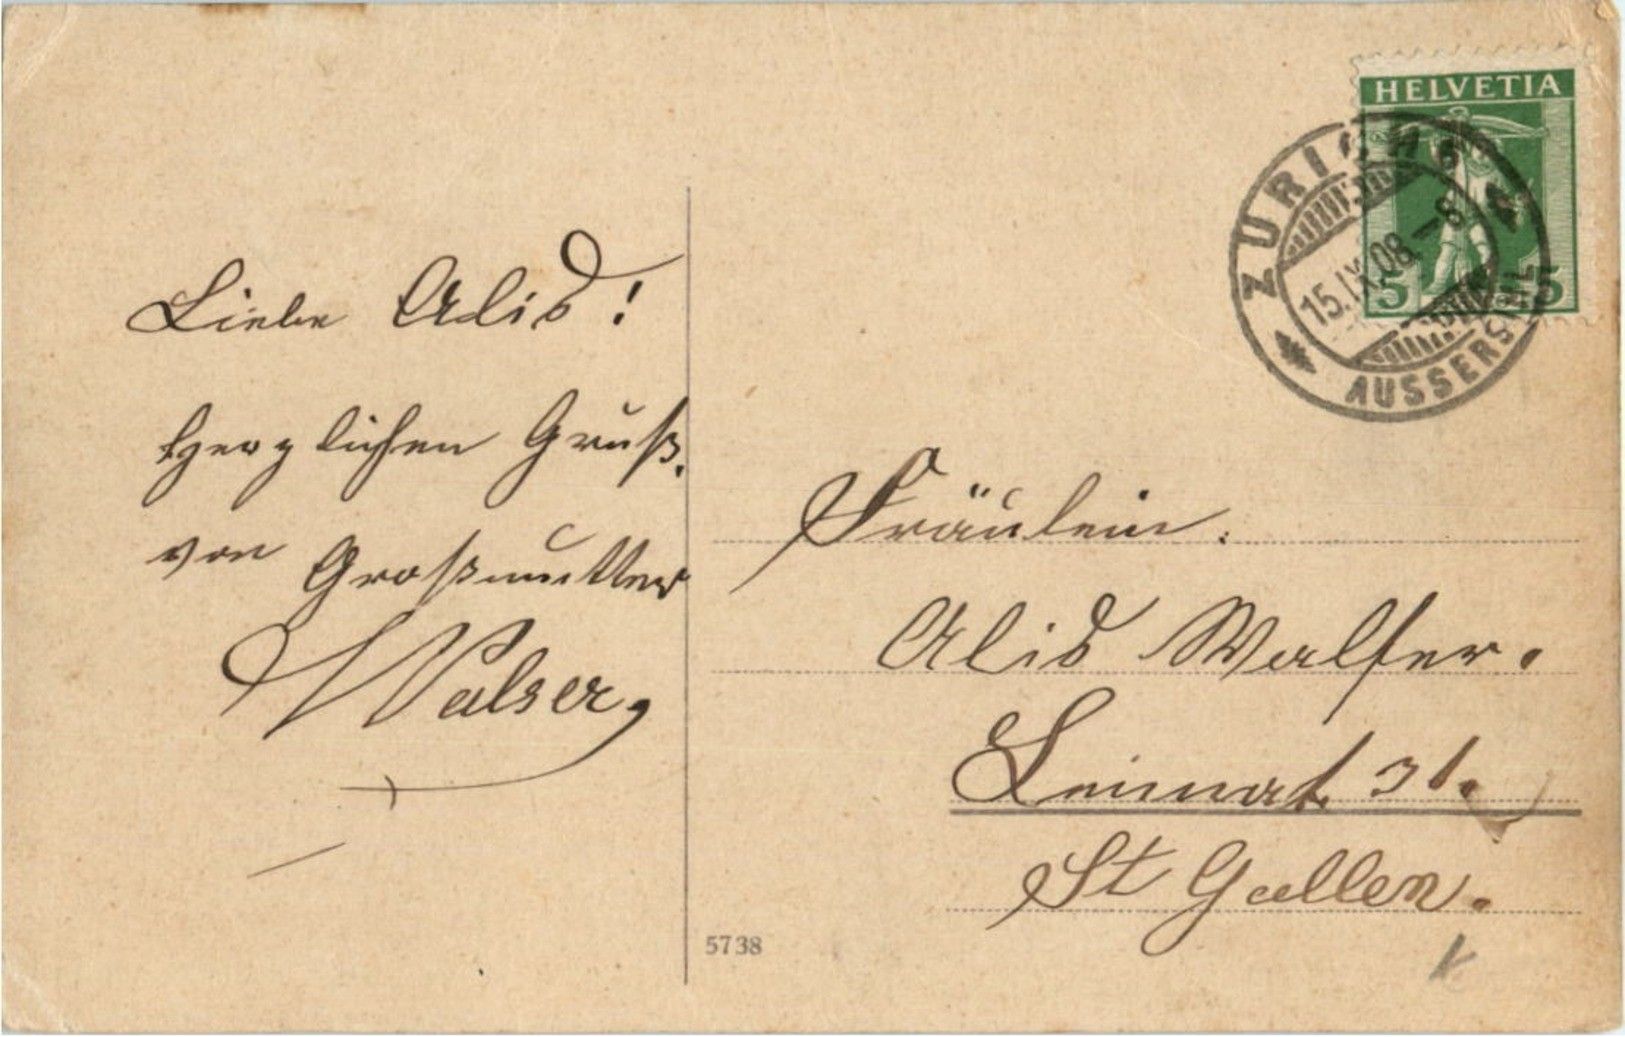 Liebe Alis!
Herzlichen Gruß.
von Großmutter
Walser,
HELVETIA
5 5
ZÜRICH 6
15.IX.08.–8
AUSSERSIHL
Fräulein.
Alis Walser.
Leimat. 31.
St Gallen.
5738